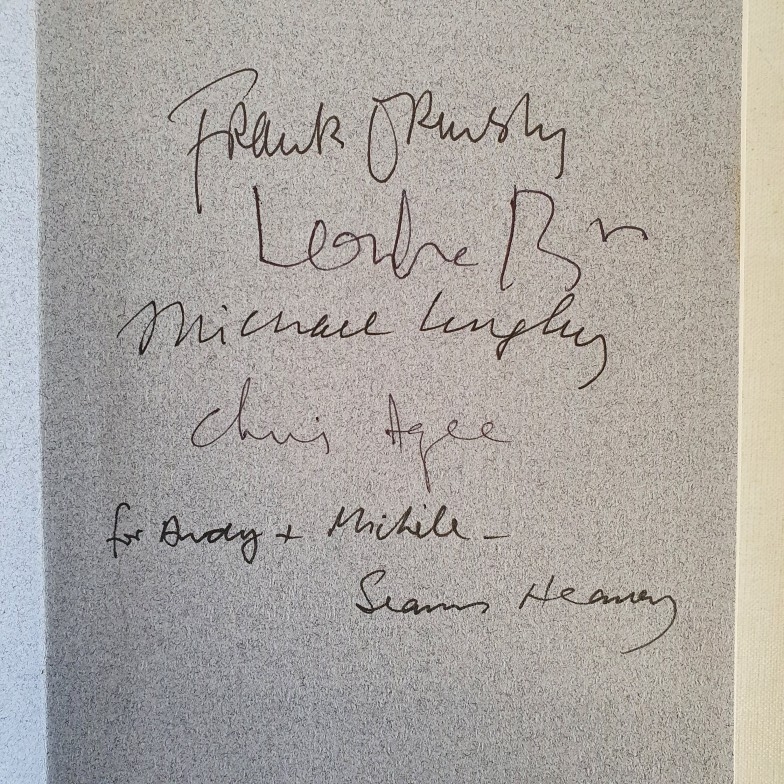 Frank Ormsby
Leontia
Michael Longley
Chris Agee
for Andy + Michele –
Seamus Heaney